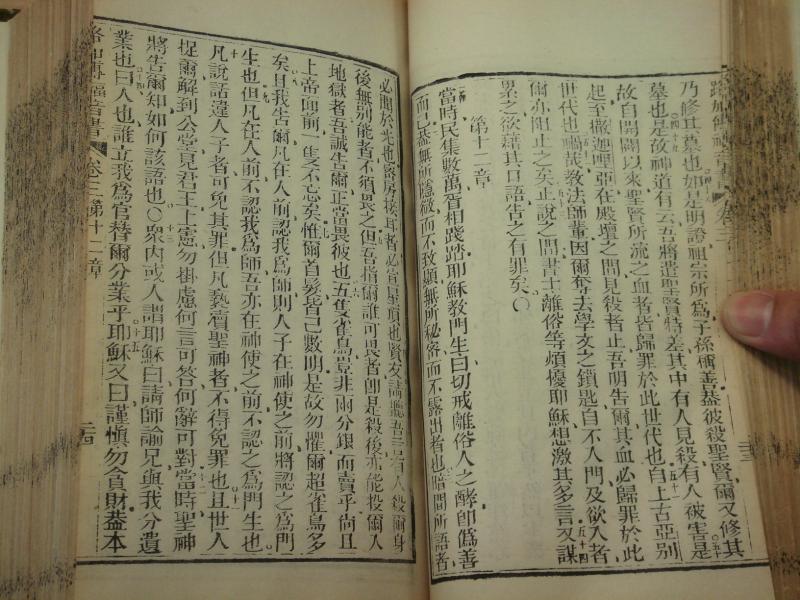 乃修其墓也如是明證祖宗所爲子孫稱善葢彼殺聖賢爾又修其
墓也是故神道有云吾將遣聖賢特差其中有人見殺有人被害是
故自開闢以來聖賢所流之血者皆歸罪於此世代也自上古亞別
起至撒迦哩亞在殿壇之間見殺者止吾明告爾其血必歸罪於此
世代也禍哉教法師輩因爾奪去學文之鎖匙自不入門及欲入者
爾亦阻止之矣正說之間書士離俗等煩擾耶穌想激其多言又謀
累之欲藉其口語告之有罪矣〇
第十二章
當時民集數萬胥相踐踏耶穌教門生曰切戒離俗人之酵卽僞善
而已葢無所隱微而不致顯無所秘密而不露出者也暗間所語者
必聞於光也密房接耳者必宣屋頂也賢友請聽吾言有人殺爾身
後無別能者不須畏之但吾指爾誰可畏者卽是殺後亦能投爾人
地獄者吾誠告爾正當畏彼也五隻雀鳥豈非兩分銀而賣乎尚且
上帝面前一隻不忘矣惟爾首髮皆已數明是故勿懼爾超雀鳥多
矣且我告爾凡在人前認我爲師則人子在神使之前將認之爲門
生也但凡在人前不認我爲師吾亦在神使之前不認之爲門生也
凡說話違人子者可免其罪但凡褻瀆聖神者不得免罪也且世人
捉爾解到公堂見君王上憲勿掛慮何言可答何辭可對當時聖神
將告爾知如何該語也〇衆内或人謂耶穌曰請師諭兄與我分遺
業也曰人也誰立我爲官替爾分業乎耶穌又曰謹愼勿貪財葢本
路加傳福音書 卷三 第十二章 二四